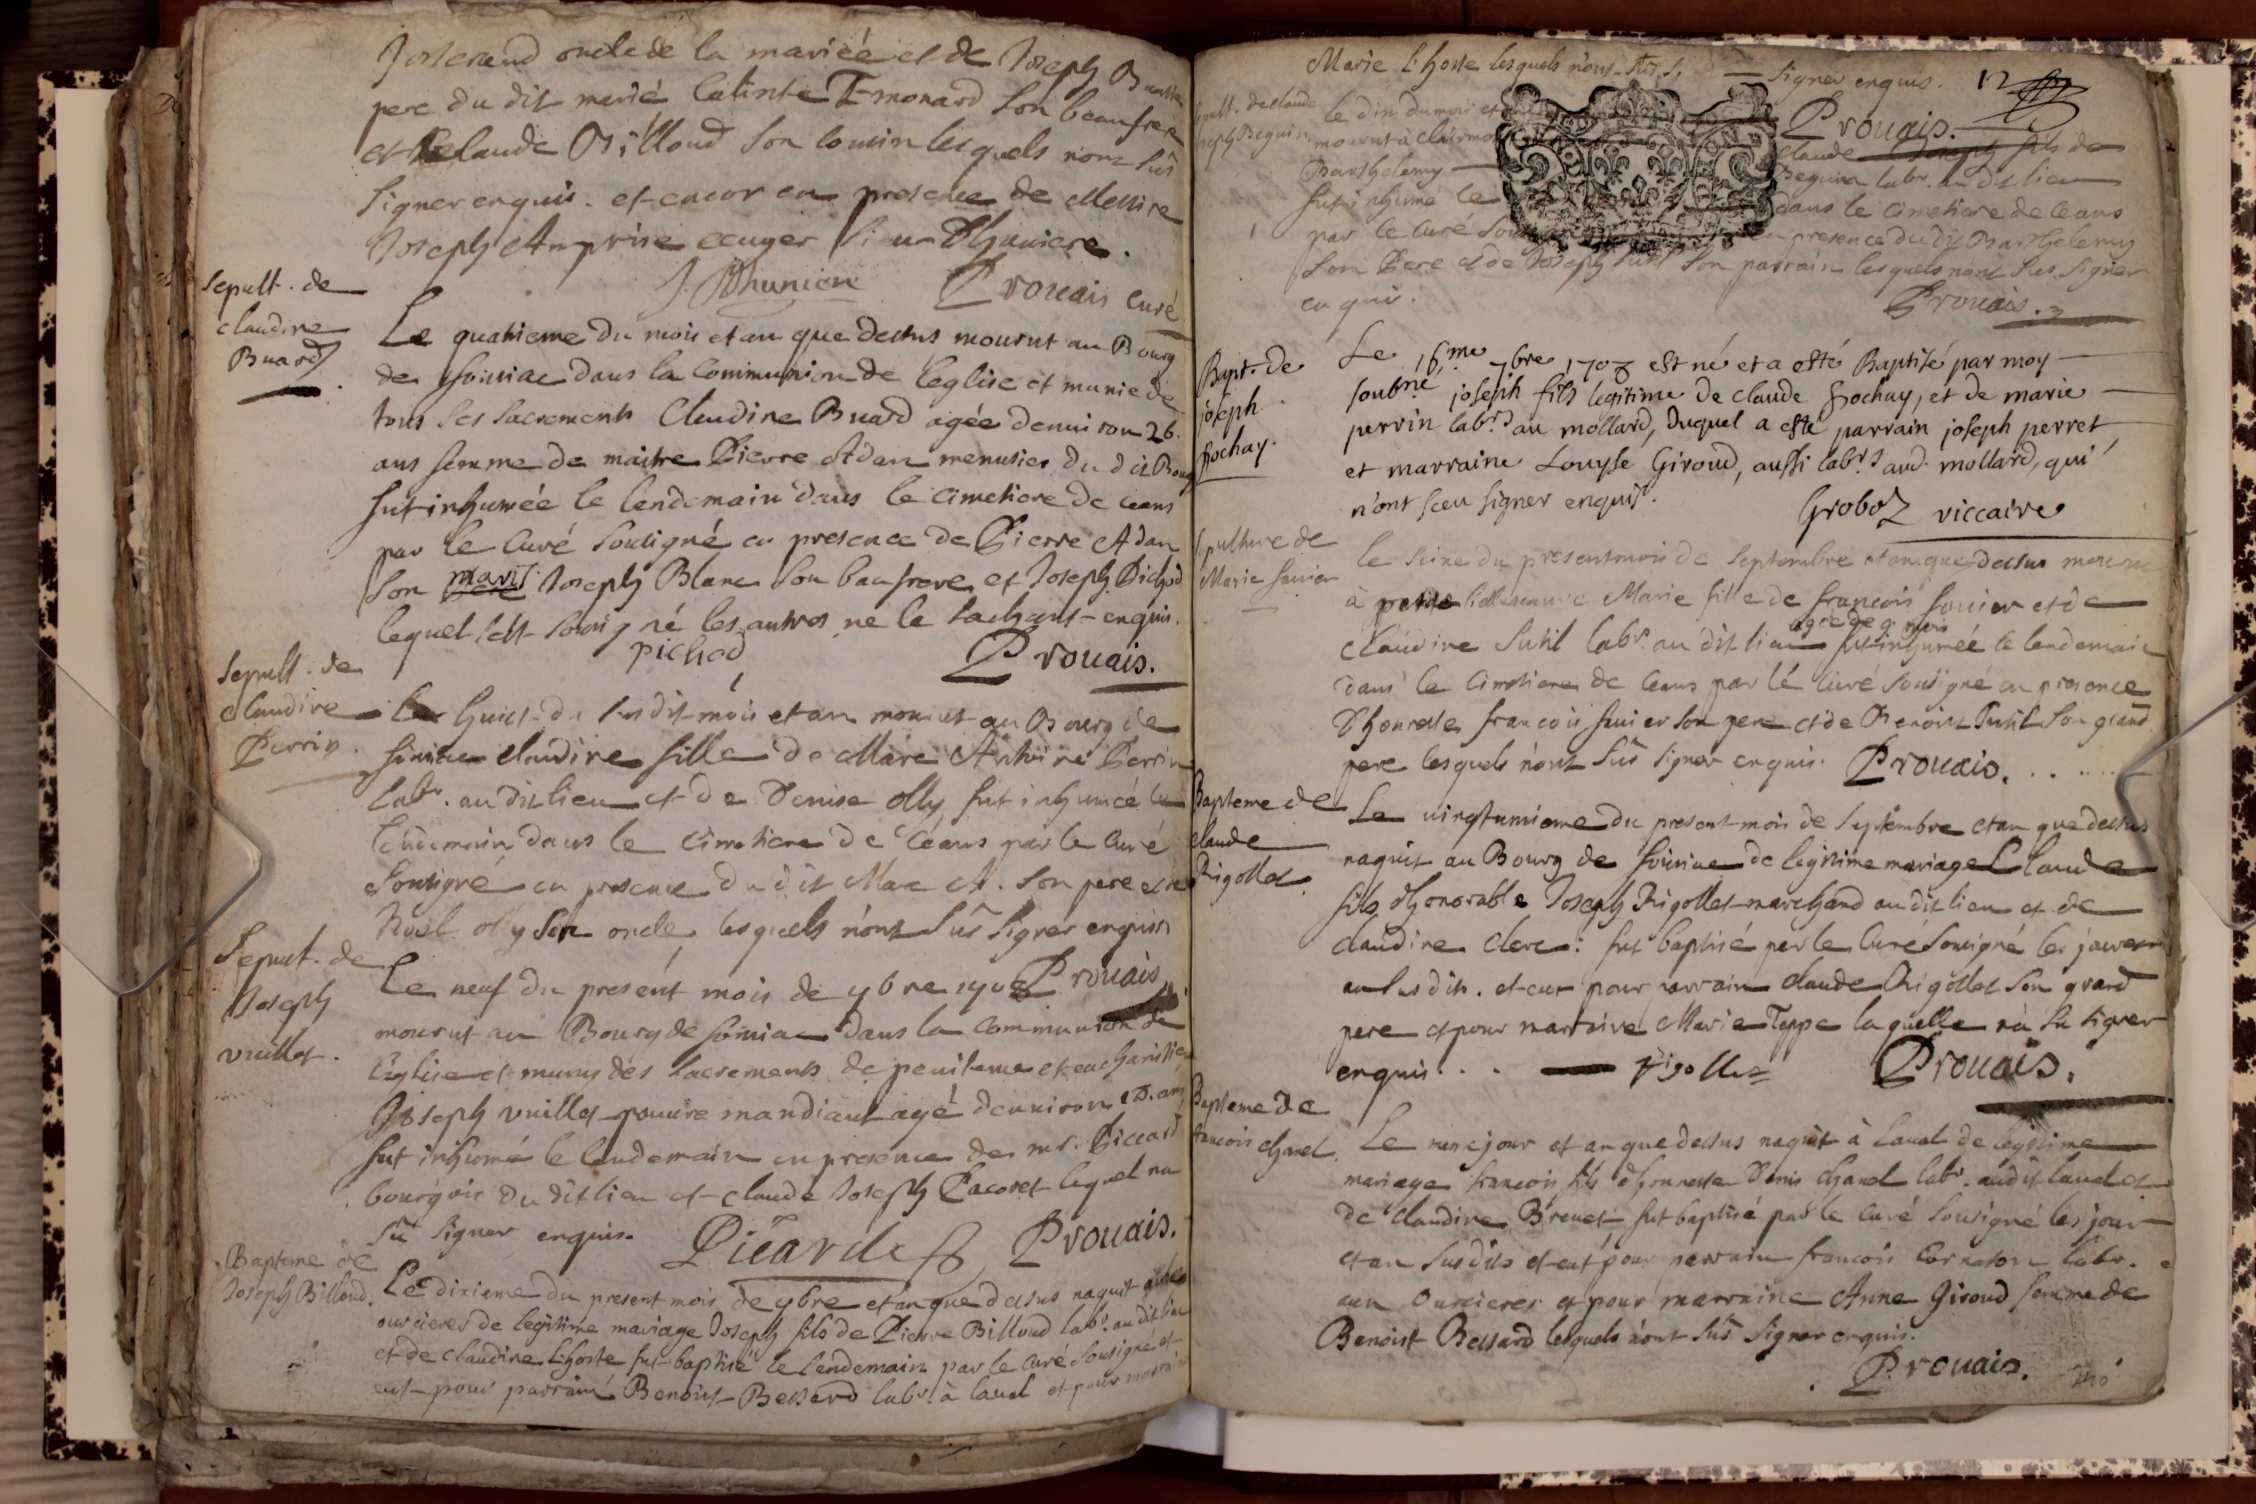 Josserand oncle de la mariée et de Joseph
pere du dit marié Catinte Tmonard son beaufrere
et Claude Billoud son cousin lesquels nont sus
signer enquis. et encor en presence de Messire
Joseph Amprise ecuyer sieur Dhuniere.
J. Dhuniere Prouais curé
Sepult. de
claudine
Buard
Le quatrieme du mois et an que dessus mourut au Bourg
de foissiac dans la Communion de leglise et munie de
tous ses sacrements Claudine Buard agée denviron 26.
ans femme de maitre Pierre Adan menusier du dit Bourg
fut inhumée le lendemain dans le cimetiere de ceans
par le Curé sousigné en presence de Pierre Adan
son pere maris. Joseph Blanc son baufrere et Joseph Pichod
lequel sest sousigné les autres ne le sachans enquis.
pichod Prouais.
Sepult. de
Claudine
Perrin.
Le huict du susdit mois et an mourut au Bourg de
foissiac claudine fille de Marc Antoine Perrin
labr. au dit lieu et de Denise olly fut inhumée le
lendemain dans le Cimetiere de Céans par le Curé
sousigné en presence du dit Marc A. son pere et de
Noel olly son oncle lesquels n'ont sus signer enquis
Prouais
Sepult. de
Joseph
vuillet.
Le neuf du present mois de 7bre 1708
mourut au Bourg de foissiac dans la communion de
Leglise et muny des sacrements de penitence et eucharistie
Joseph vuillet pauvre mandiant agé denviron ans
fut inhumé le lendemain en presence de mr. Piccard
bourgois du dit lieu et claude Joseph Pacoret lequel na
sû signer enquis. Picard Prouais.
Bapteme de
Joseph Billoud.
Le dixieme du present mois de 7bre et an que dessus naquit
ourcieres de legitime mariage Joseph fils de Pierre Billoud labr. au dit lieu
et de claudine Lhoste fut baptisé le lendemain par le curé sousigné et
eut pour parrain Benoist Bessard labr. à laval et pour marraine
Marie Lhoste lesquels n'ont sus signer enquis. 12
Prouais.
Sepult. de claude
Joseph Beguin.
Le dix du mois et
mourut à Clairmo claude Joseph fils de
Barthelemy Beguin labr. au dit lieu
fut inhumé le dans le cimetiere de Ceans
par le Curé sous en presence du dit Barthelemy
son Pere et de Joseph Sutil son parrain lesquels nont sus signer
enquis.
Prouais.
Bapt. de
joseph
fochay.
Le 16.me 7bre 1708 est né et a esté Baptisé par moy
soubné joseph fils legitime de claude fochay, et de marie
perrin labrs au mollard, duquel a este parrain joseph perret
et marraine Louyse Giroud, aussi labrs aud. mollard, qui
n'ont sceu signer enquis.
Groboz viccaire
Sepulture de
Marie fauier
le seize du present mois de septembre et an que dessus mourut
à petite villeneuve Marie fille de françois fauier et de
Claudine Sutil labr. au dit lieu agée de 9 mois fut inhumée le lendemain
dans le Cimetiere de Ceans par lé curé sousigné en presence
D'honneste francois fauier son pere et de Benoist Sutil son grand
pere lesquels n'ont sus signer enquis. Prouais.
Bapteme de
claude
Rigollet.
Le vingtunieme du present mois de septembre et an que dessus
naquit au Bourg de foissiac de legitime mariage Claude
fils d'honorable Joseph Rigollet marchand au dit lieu et de
claudine Clerc: fut baptisé par le Curé sousigné les jour
au susdits. et eut pour parrain claude Rigollet son grand
pere et pour marraine Marie Teppe laquelle n'a su signer
enquis... Rigollet Prouais.
Bapteme de
francois chanel.
Le mesme jour et an que dessus naquit à Laval de legitime
mariage francois fils d'honneste Denis Chanel labr. au dit laval et
de Claudine Brevet fut baptisé par le curé sousigné les jour
et an susdits et eut pour parrain francois Cornaton labr.
aux ourcieres et pour marraine Anne Giroud femme de
Benoist Bessard lesquels n'ont sus signer enquis.
Prouais.